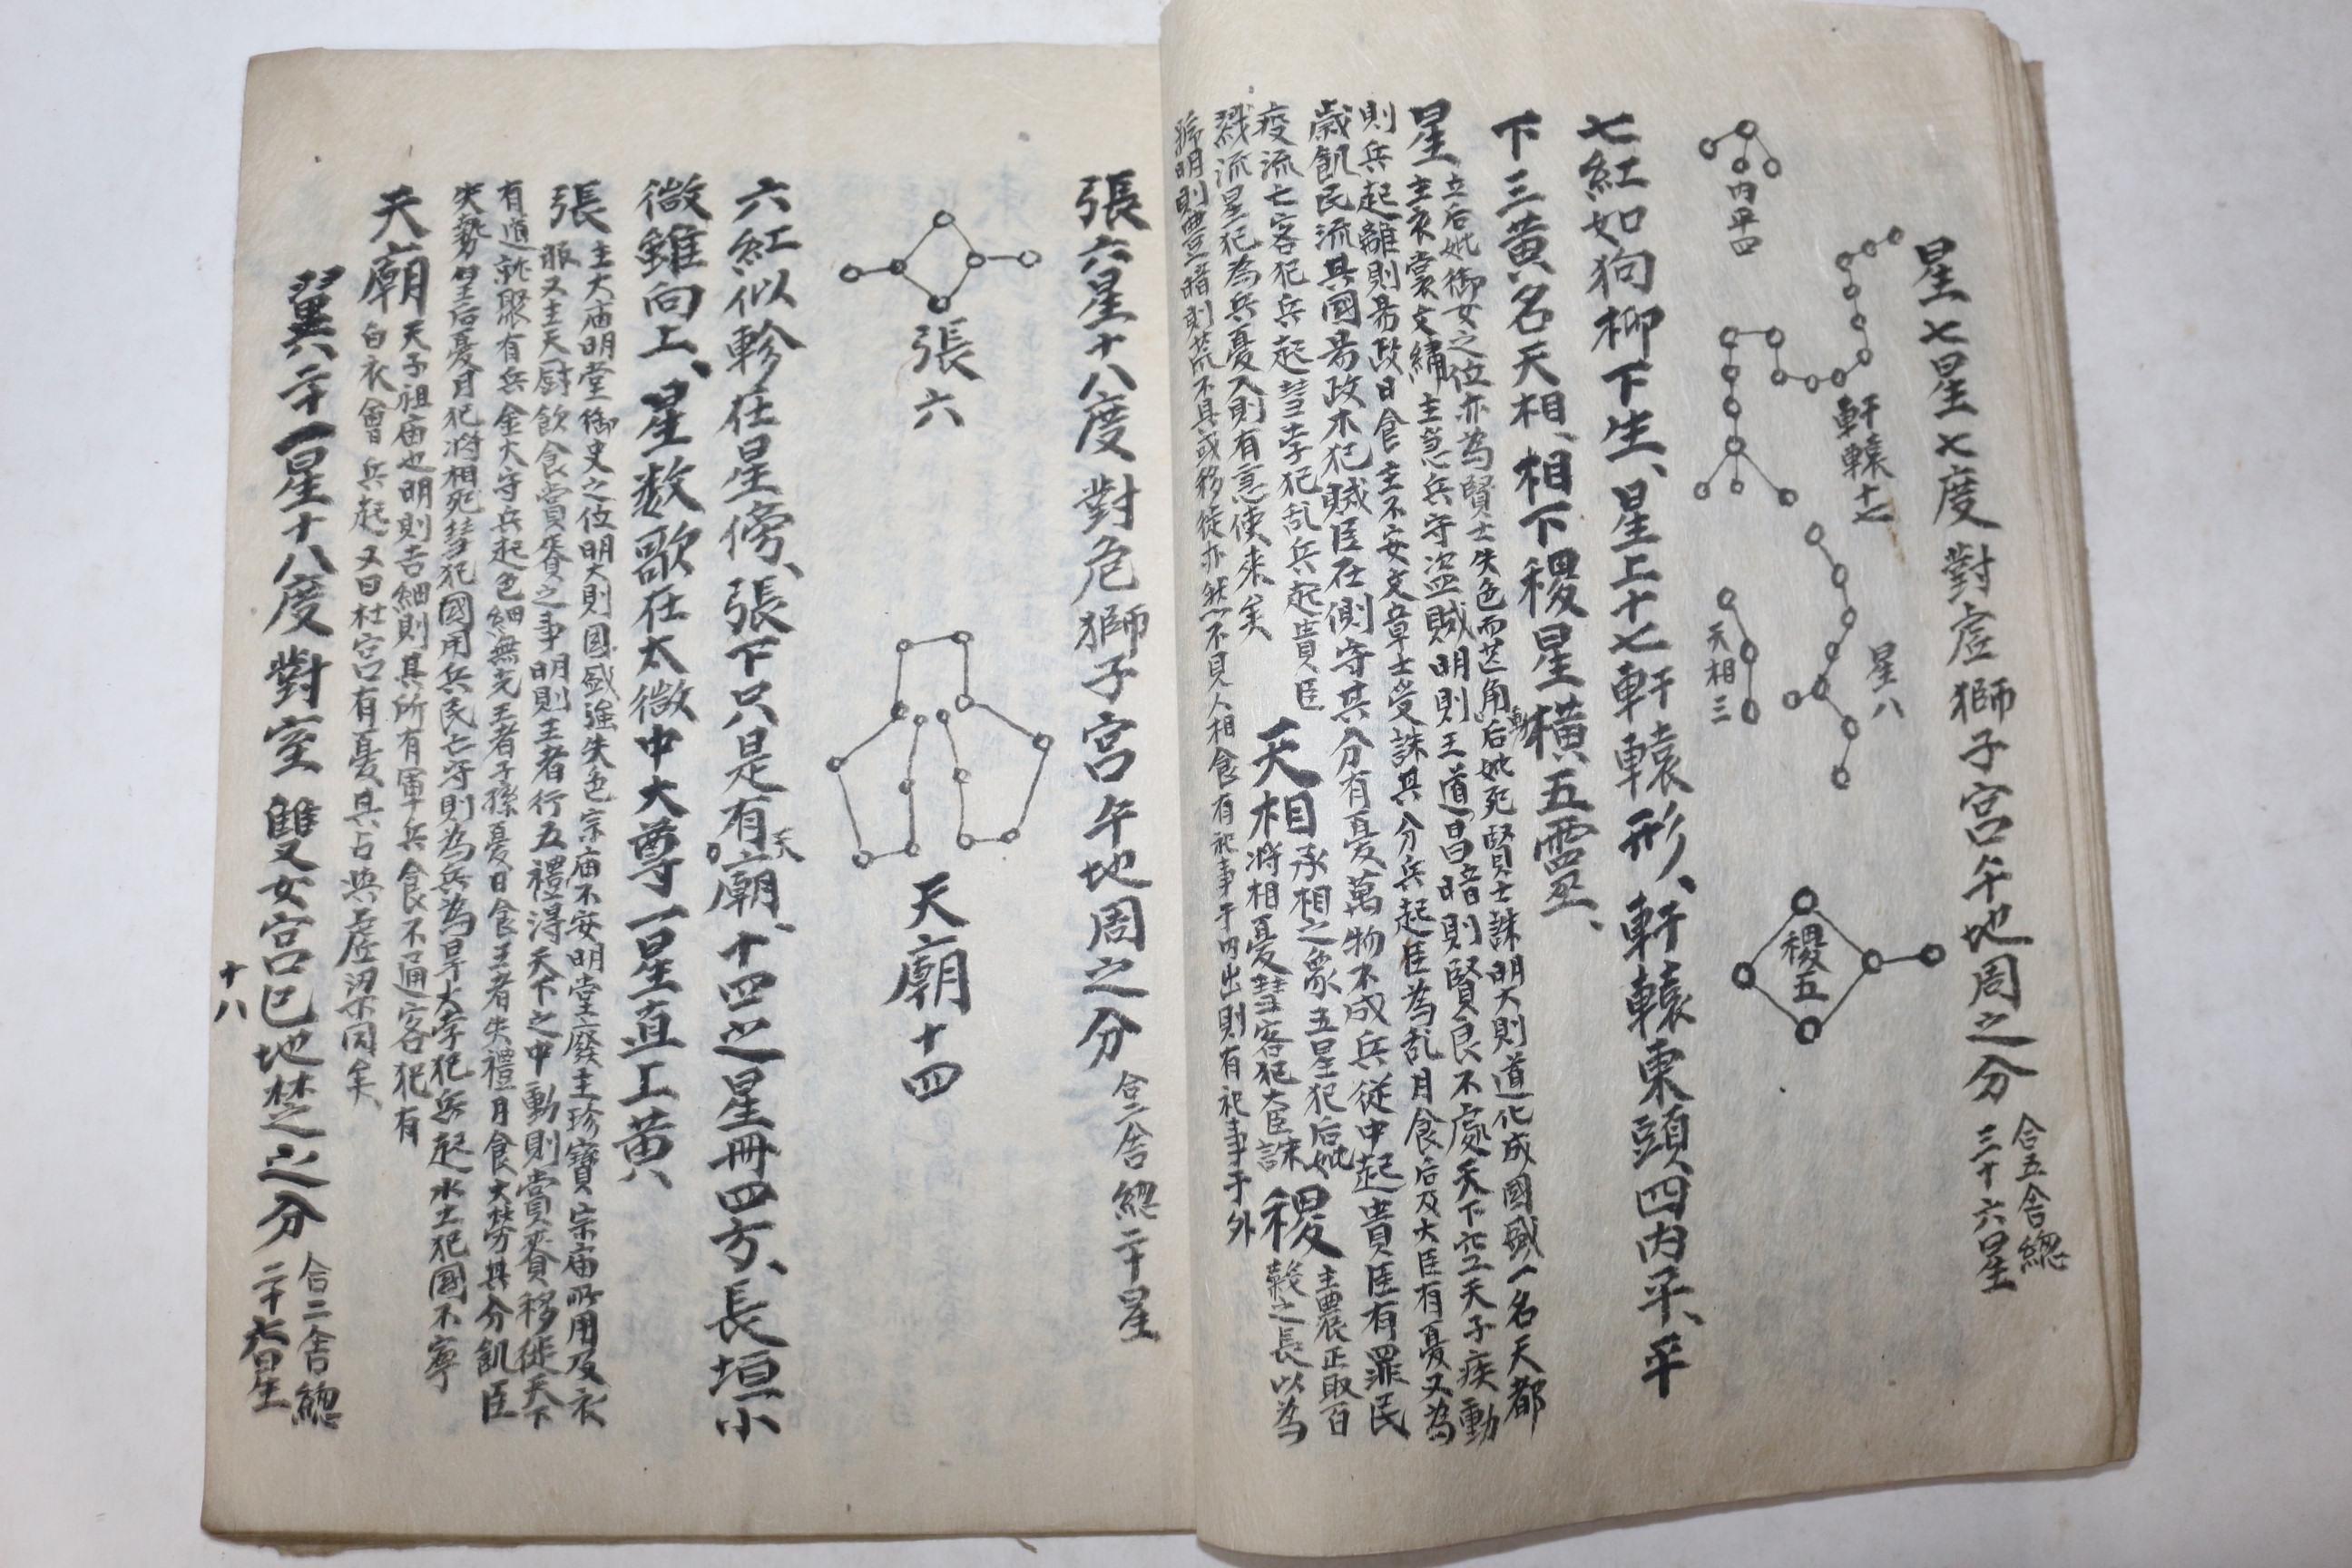 星七星七度對虛獅子宮午地周之分 合五舍總
三十六星
內平四
軒轅十七
星八
天相三
稷五
七紅如狗柳下生、星上十七軒轅形、軒轅東頭四內平、平
下三黃名天相、相下稷星橫五靈、
星 立后妣御女之位亦為賢士失色而芒角動后妣死賢士誅明大則道化成國盛一名天都
主衣裳文繡主急兵守盜賊明則王道昌暗則賢良不處天下空天子疾動
則兵起離則易政日食主不安文章士受誅其分兵起臣為乱月食后及大臣有憂又為
歲飢民流其國易政木犯賊臣在側守其分有憂萬物不成兵從中起貴臣有罪民
疫流亡客犯兵起彗孛犯乱兵起貴臣 天相 承相之象五星犯后妣 稷 主農正取百
戮流星犯為兵憂入則有急使來矣 將相憂彗客犯大臣誅 穀之長以為
號明則豊暗則荒不具或移徙亦然一不見人相食有祀事于內出則有祀事于外
張六星十八度對危獅子宮午地周之分 合二舍總二十星
張六
天廟十四
六紅似軫在星傍、張下只是有天廟、十四之星冊四方、長垣小
微雖向上、星数歌在太微中大尊一星直上黃
張 主大庙明堂御史之位明大則國盛強失色宗庙不安明堂廢主珍寶宗庙所用及衣
服又主天厨飲食賞賚之事明則王者行五禮得天下之中動則賞賚移徙天下
有逆就聚有兵金火守兵起色細無光王者子孫憂日食王者失禮月食大勞其分飢臣
失勢皇后憂月犯将相死彗犯國用兵民亡守則為兵為旱大孛犯兵起水土犯國不寧
天廟 天子祖庙也明則吉細則其所有軍兵食不通客犯有
白衣會兵起又曰杜宮有憂具占與虛梁同矣、
翼二十二星十八度對室雙女宮巳地楚之分 合二舍總
二十七星
十八